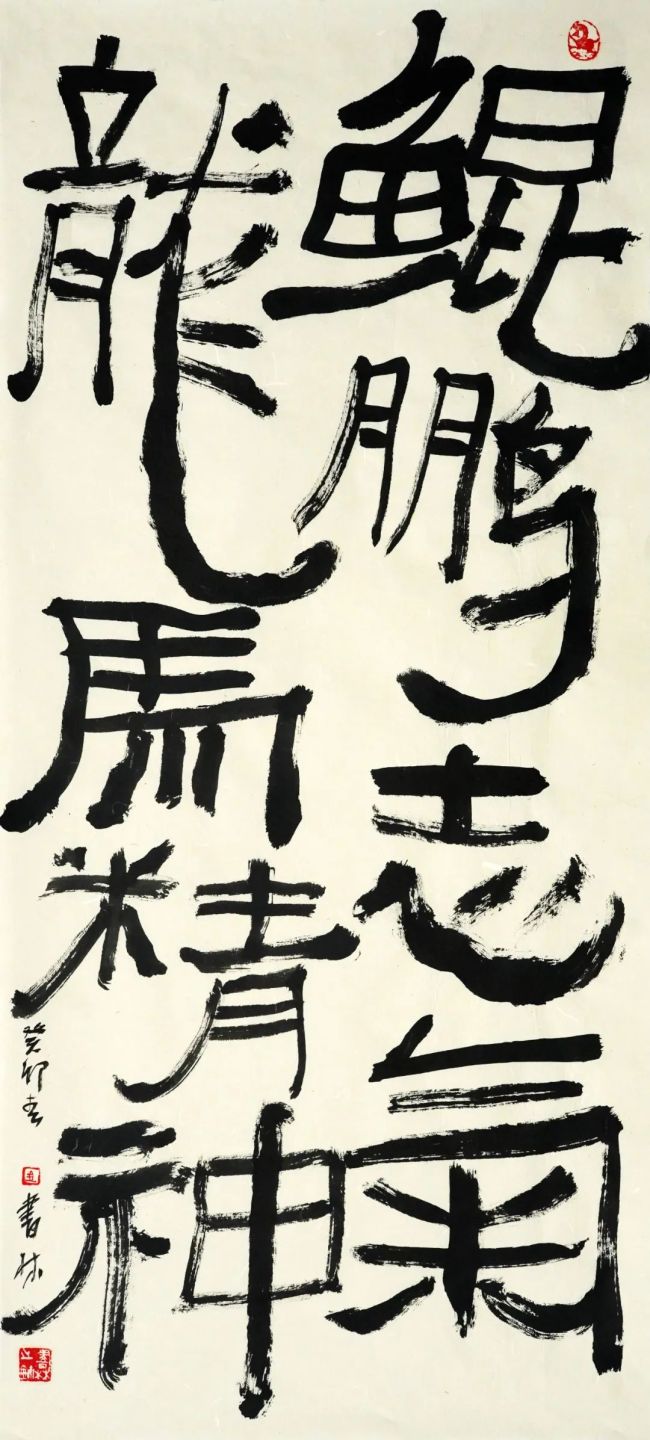 鯤鹏志氣
龍馬精神
癸卯春
書林